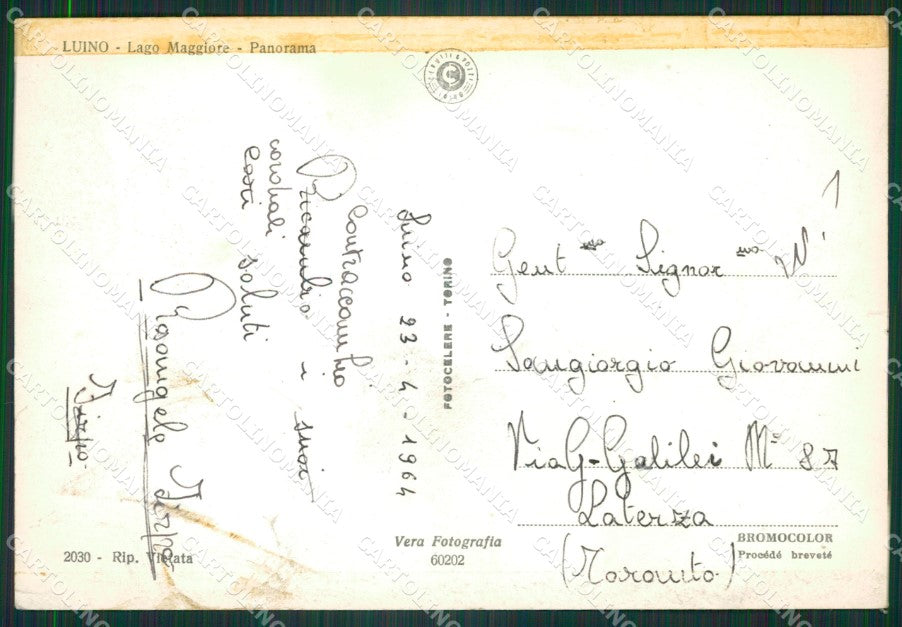 LUINO - Lago Maggiore - Panorama
Luino 23-4-1964
Contraccambio
Ricambio i suoi
cordiali
cari saluti
Gent Signor
Sangiorgio Giovanni
Via G-Galilei N° 87
Laterza
(Taranto)
FOTOCELERE - TORINO
2030 - Rip. Vietata
Vera Fotografia
60202
BROMOCOLOR
Procédé breveté
CARTOLINOMANIA